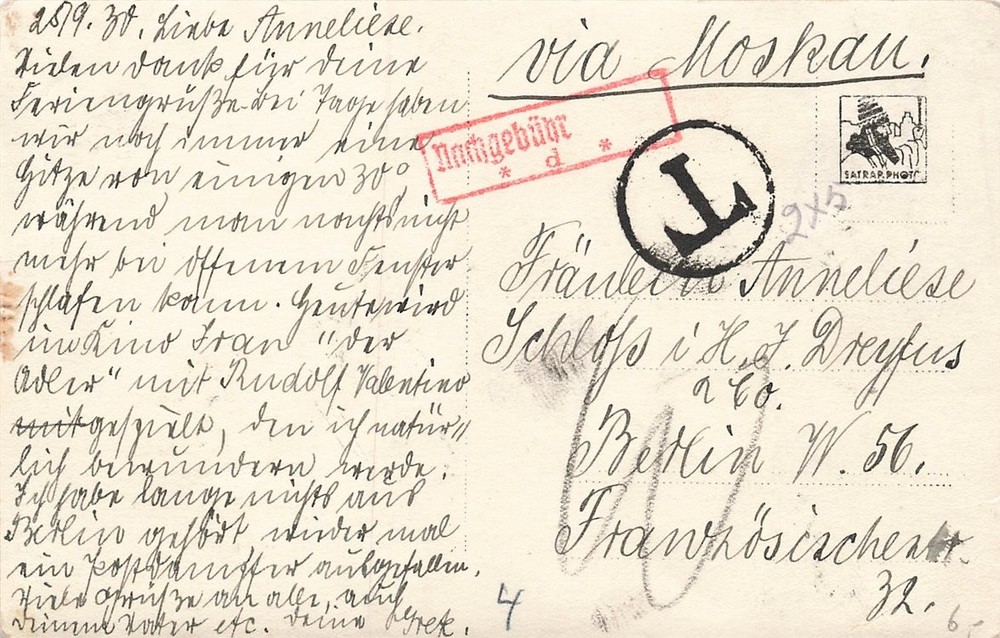 25/9. 30. Liebe Anneliese.
Vielen Dank für deine
Feriengrüße. Bei Tage haben
wir noch immer eine
Hitze von einigen 30°
während man nachts nicht
mehr bei offenem Fenster
schlafen kann. Heute wird
im Kino Iran "der
Adler" mit Rudolf Valentino
mit gespielt, den ich natür"
lich bewundern werde.
Ich habe lange nichts aus
Berlin gehört wieder mal
ein Postdampfer ausgefallen.
Viele Grüße an alle, auch
deinem Vater etc. deine Grete.
via Moskau.
Nachgebühr
* d *
T
SATRAP. PHOTO
2x5
Fräulein Anneliese
Schloß i H. J. Dreyfus
& Co.
Berlin W. 56.
Französischestr.
32.
4
6,-